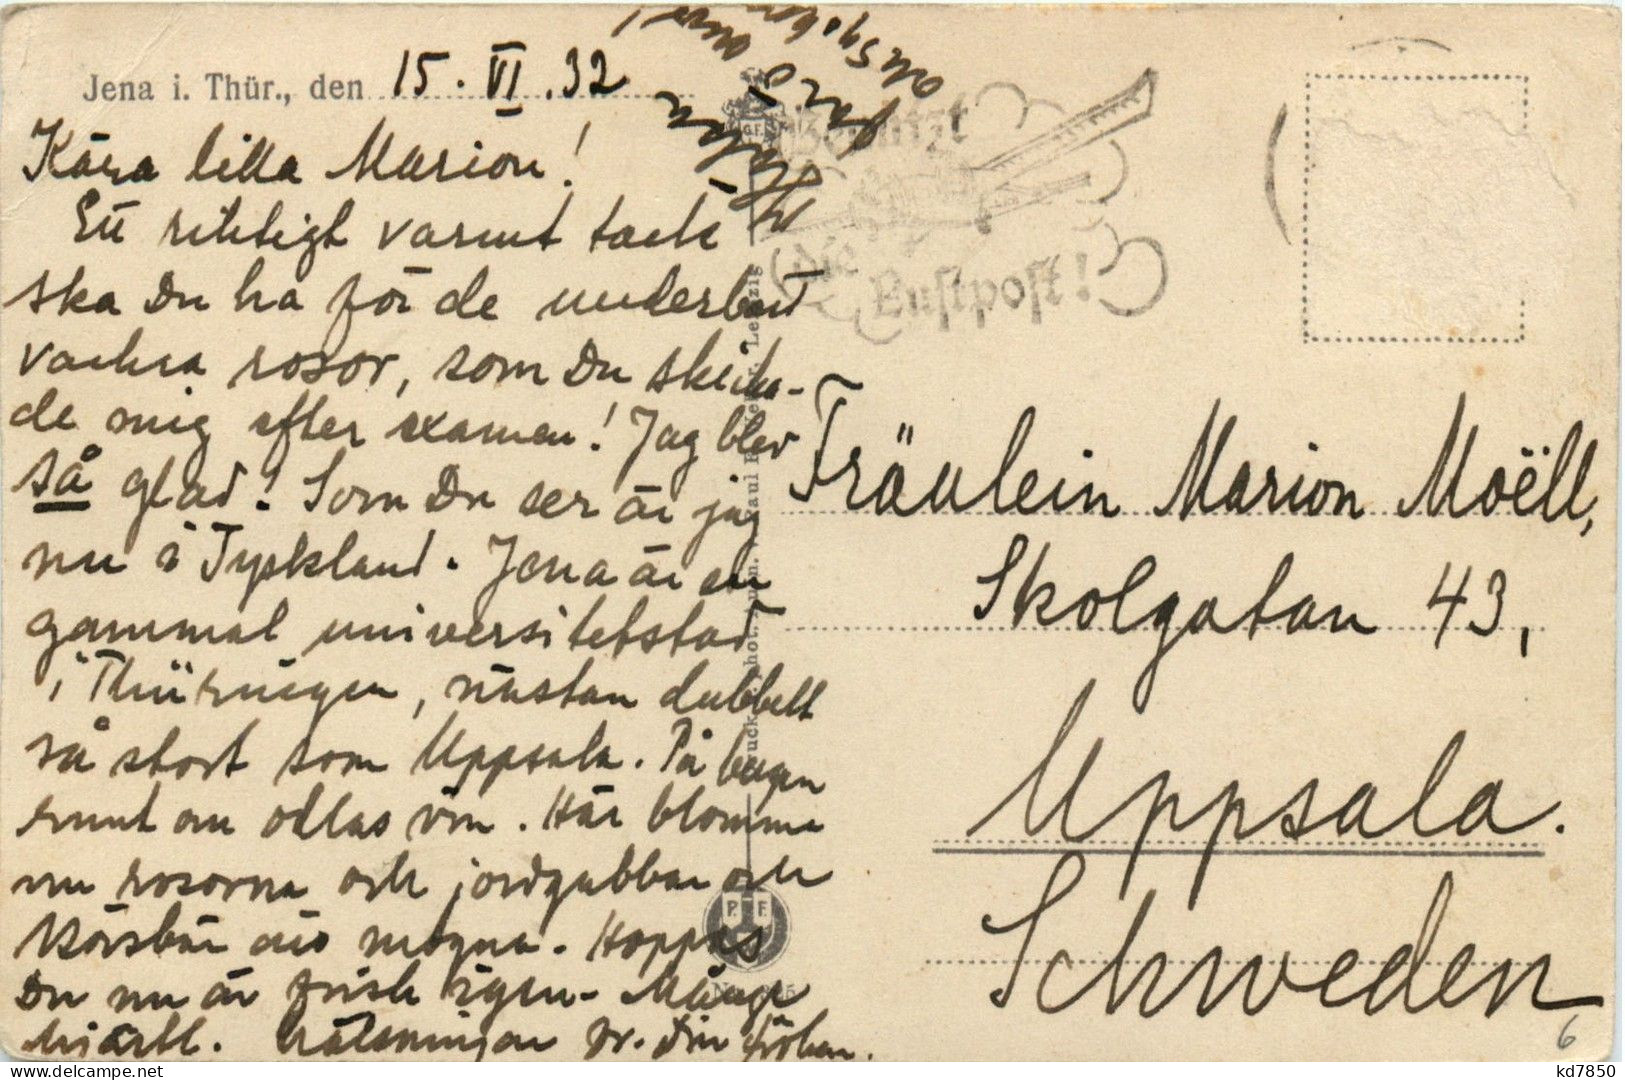 Jena i. Thür., den 15. VI. 32
Kära lilla Marion!
Ett riktigt varmt tack
ska Du ha för de underbart
vackra rosor, som Du skicka-
de mig efter examen! Jag blev
så glad! Som Du ser är jag
nu i Tyskland. Jena är en
gammal universitetsstad
i Thüringen, nästan dubbelt
så stort som Uppsala. På bergen
runt om odlas vin. Här blomma
nu rosorna och jordgubbar och
körsbär äro mogna. Hoppas
Du nu är frisk igen. Många
hjärtl. hälsningar fr. Din fröken.
Hälsa
far o mor
och syskon
Benützt
die
Luftpost!
Fräulein Marion Moëll,
Skolgatan 43,
Uppsala.
Schweden
P. F.
6
kd7850